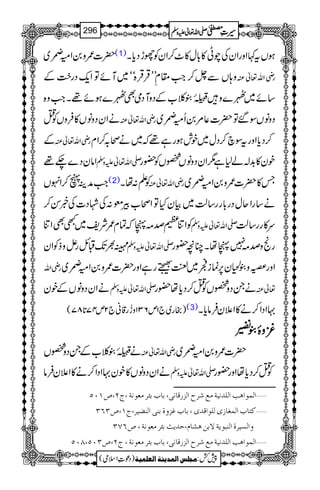 سیرتِ مصطفیٰ صلی اللہ تعالیٰ علیہ وسلم 296
ہوں یہ کہا اور ان کی چوٹی کا بال کاٹ کر ان کو چھوڑ دیا۔(1) حضرت عمرو بن امیہ ضمری
رضی اللہ تعالیٰ عنہ وہاں سے چل کر جب مقام "قرقرہ" میں آئے تو ایک درخت کے
سائے میں ٹھہرے وہیں قبیلۂ بنو کلاب کے دو آدمی بھی ٹھہرے ہوئے تھے۔ جب وہ
دونوں سو گئے تو حضرت عمرو بن امیہ ضمری رضی اللہ تعالیٰ عنہ نے ان دونوں کافروں کو قتل
کر دیا اور یہ سوچ کر دل میں خوش ہو رہے تھے کہ میں نے صحابۂ کرام رضی اللہ تعالیٰ عنہم کے
خون کا بدلہ لے لیا ہے مگر ان دونوں شخصوں کو حضور صلی اللہ تعالیٰ علیہ وسلم امان دے چکے تھے
جس کا حضرت عمرو بن امیہ ضمری رضی اللہ تعالیٰ عنہ کو علم نہ تھا۔(2) جب مدینہ پہنچ کر انہوں
نے سارا حال دربار رسالت میں بیان کیا تو اصحاب بیر معونہ کی شہادت کی خبر سن کر
سرکار رسالت صلی اللہ تعالیٰ علیہ وسلم کو اتنا عظیم صدمہ پہنچا کہ تمام عمر شریف میں کبھی بھی اتنا
رنج و صدمہ نہیں پہنچا تھا۔ چنانچہ حضور صلی اللہ تعالیٰ علیہ وسلم مہینہ بھر تک قبائل رعل و ذکوان
اور عصیہ و بنو لحیان پر نماز فجر میں لعنت بھیجتے رہے اور حضرت عمرو بن امیہ ضمری رضی اللہ
تعالیٰ عنہ نے جن دو شخصوں کو قتل کر دیا تھا حضور صلی اللہ تعالیٰ علیہ وسلم نے ان دونوں کے خون
بہا ادا کرنے کا اعلان فرمایا۔(3) (بخاری ج۱ ص۱۳۶ و زرقانی ج۲ ص۷۴ تا ۷۸)
غزوۂ بنو نضیر
حضرت عمرو بن امیہ ضمری رضی اللہ تعالیٰ عنہ نے قبیلۂ بنو کلاب کے جن دو شخصوں
کو قتل کر دیا تھا اور حضور صلی اللہ تعالیٰ علیہ وسلم نے ان دونوں کا خون بہا ادا کرنے کا اعلان فرما
......المواهب اللدنية مع شرح الزرقانی، باب بئر معونة، ج۲، ص۵۰۱
......كتاب المغازى للواقدى، باب غزوة بنى النضير، ج۱، ص۳۶۳
والسيرة النبوية لابن هشام، حديث بئر معونة، ص۳۷۶
......المواهب اللدنية مع شرح الزرقانی، باب بئر معونة، ج۲، ص۵۰۳-۵۰۸
پیش کش: مجلس المدینة العلمية (دعوتِ اسلامی)